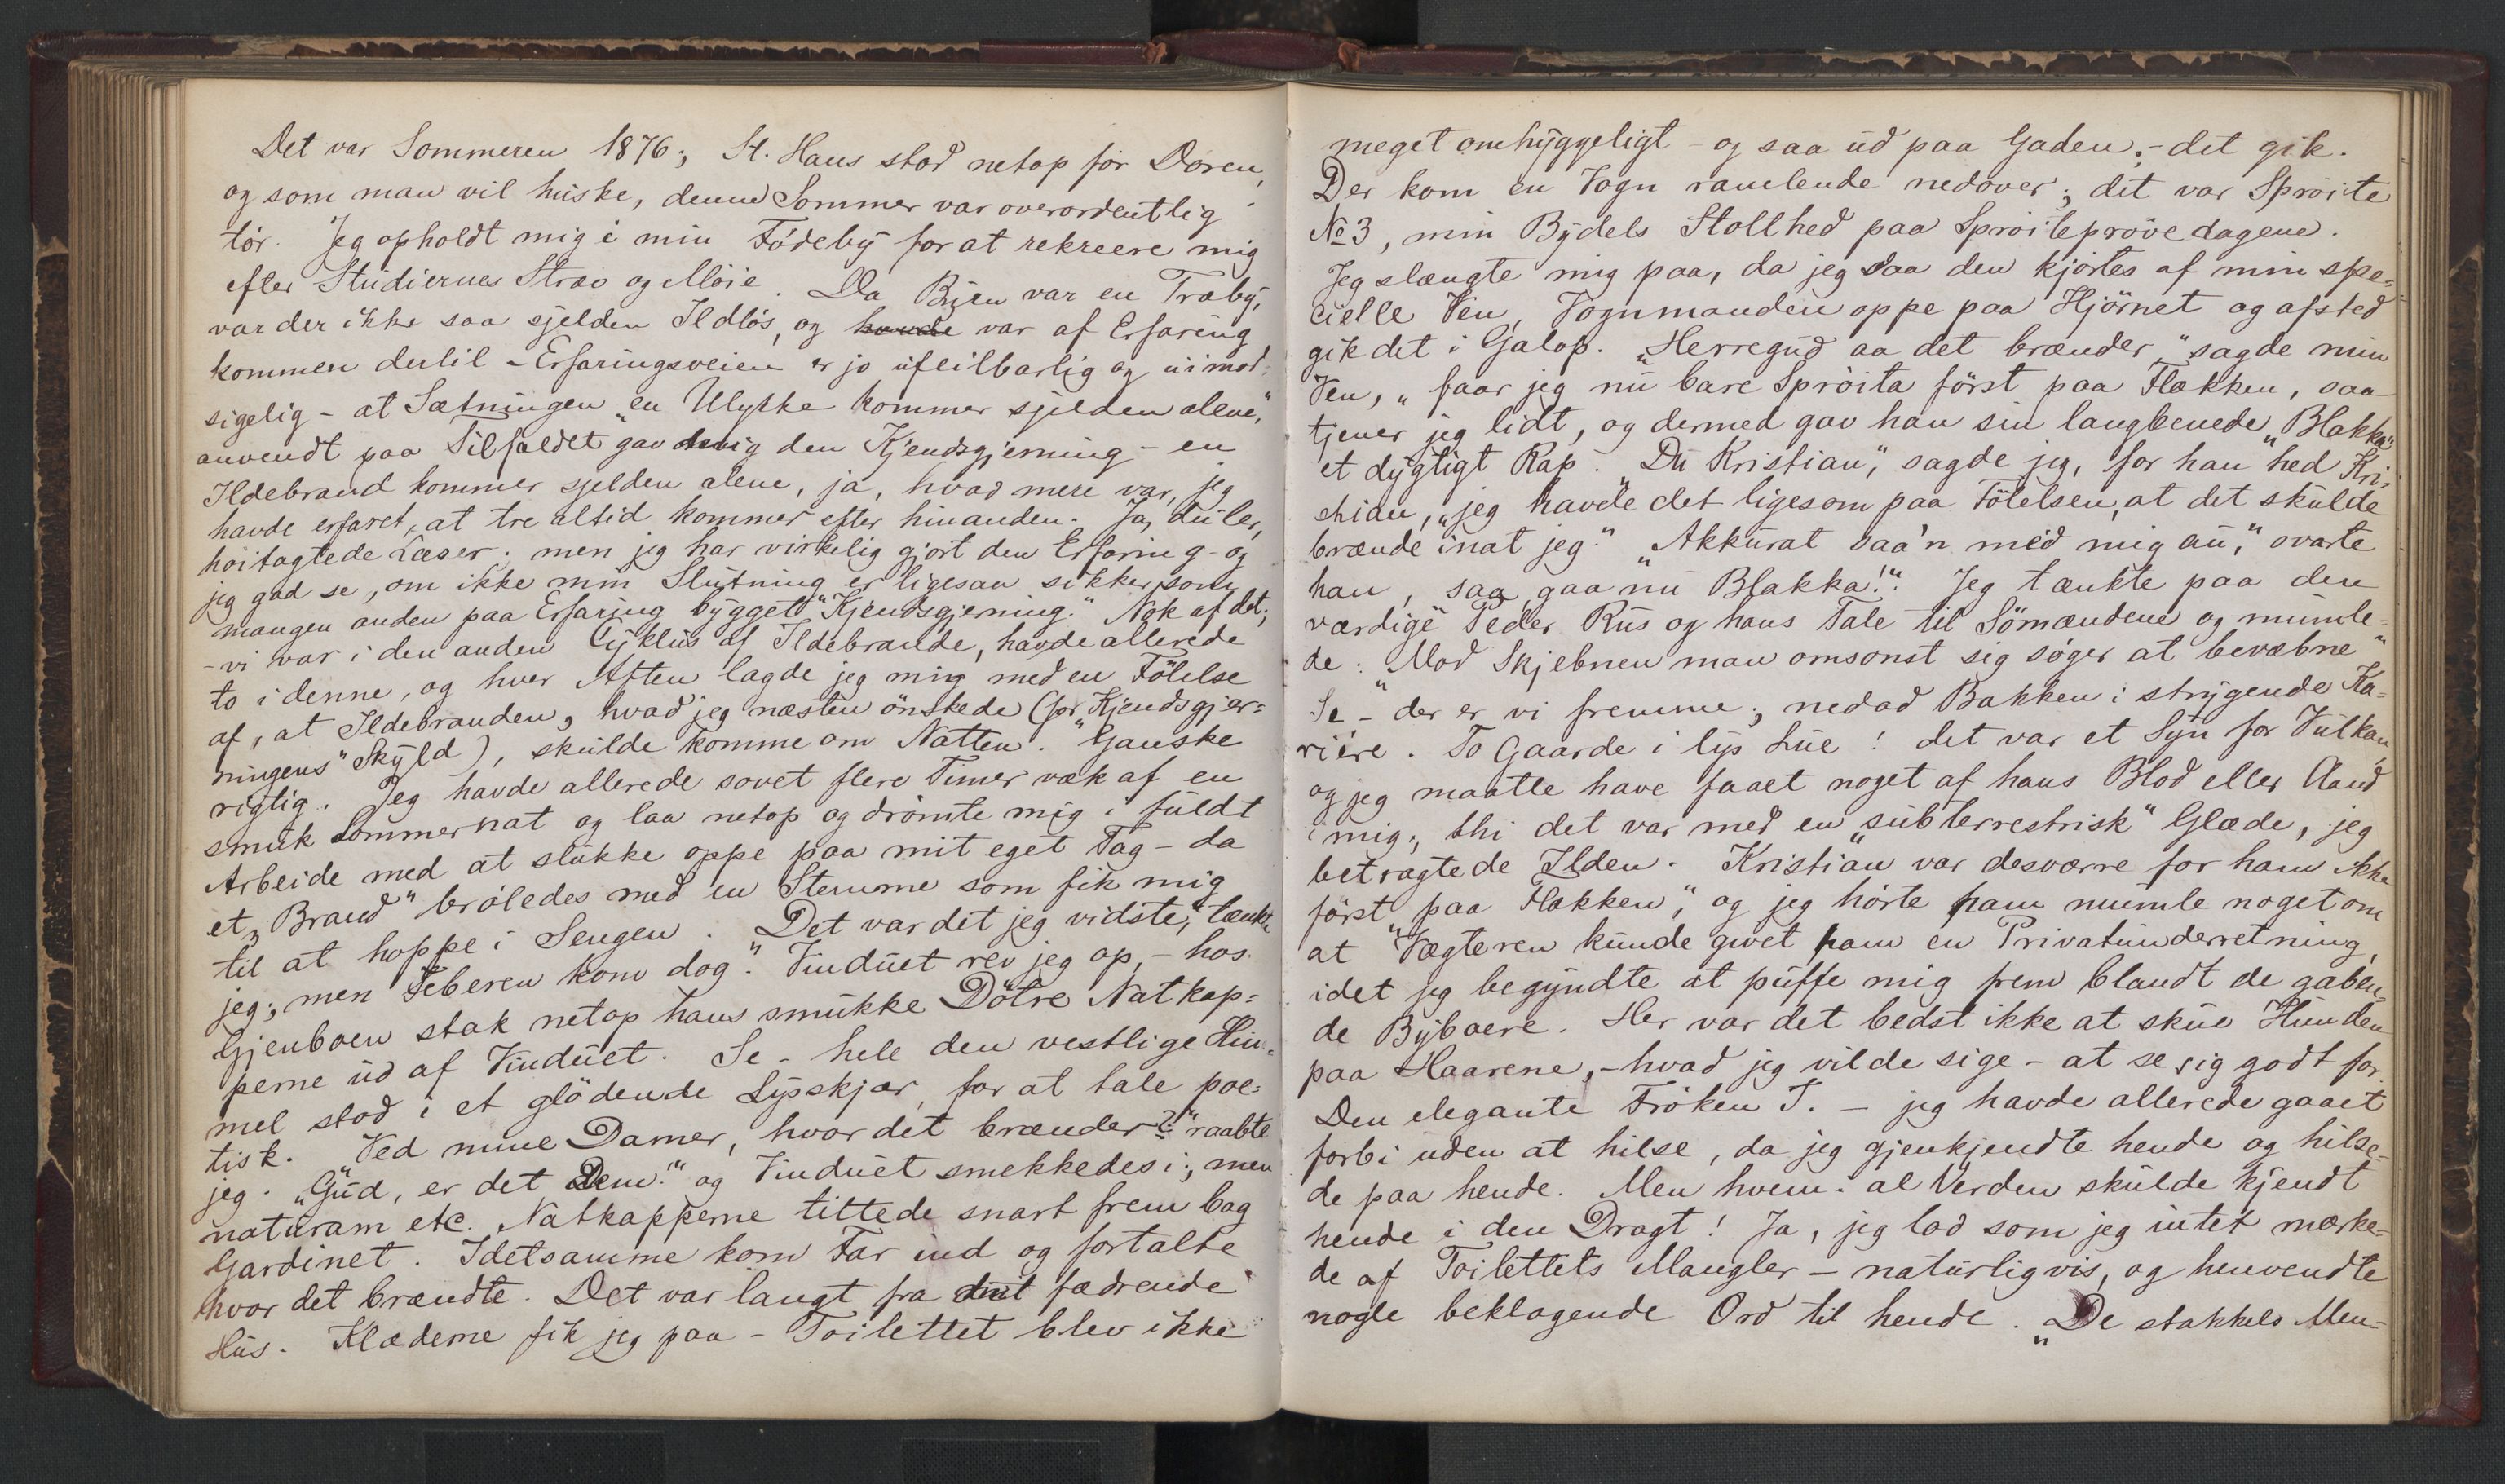 Det var Sommeren 1876; St. Hans stod netop for Døren,
og som man vil huske, denne Sommer var overordentlig
tör. Jeg opholdt mig i min Födeby for at rekreere mig
efter Studiernes Stræv og Møie. Da Byen var en Træby,
var der ikke saa sjelden Ildløs, og havde var af Erfaring
kommen dertil – Erfaringsveien er jo ufeilbarlig og uimod-
sigelig – at Sætningen „en Ulykke kommer sjelden alene,“
anvendt paa Tilfældet gav mig den Kjendsgjerning – en
Ildebrand kommer sjelden alene, ja, hvad mere var, jeg
havde erfaret, at tre altid kommer efter hinanden. Ja, du ler,
höitagtede Læser; men jeg har virkelig gjort den Erfaring – og
jeg gad se, om ikke min Slutning er ligesaa sikker som
mangen anden paa Erfaring bygget "Kjendsgjerning." Nok af det;
– vi var i den anden Cyklus af Ildebrande, havde allerede
to i denne, og hver Aften lagde jeg mig med en Følelse
af, at Ildebranden, hvad jeg næsten önskede (for "Kjendsgjer=
ningens" Skyld), skulde komme om Natten. Ganske
rigtig. Jeg havde allerede sovet flere Timer væk af en
smuk Sommernat og laa netop og drömte mig i fuldt
Arbeide med at slukke oppe paa mit eget Tag – da
et „Brand“ bröledes med en Stemme som fik mig
til at hoppe i Sengen. „Det var det jeg vidste,“ tænkte
jeg; men Feberen kom dog. Vinduet rev jeg op, – hos
Gjenboen stak netop hans smukke Døtre Natkap=
perne ud af Vinduet. Se – hele den vestlige Him=
mel stod i et glödende Lysskjær, for at tale poe=
tisk. „Ved mine Damer, hvor det brænder?“ raabte
jeg. „Gud, er det Dem!“ og Vinduet smekkedes i; men
naturam etc. Natkapperne tittede snart frem bag
Gardinet. Idetsamme kom Far ind og fortalte
hvor det brændte. Det var langt fra mit fædrende
Hus. Klæderne fik jeg paa – Toilettet blev ikke
meget omhyggeligt – og saa ud paa Gaden; – det gik.
Der kom en Vogn ramlende nedover; det var Spröite
No 3, min Bydels Stolthed paa Spröiteprövedagene.
Jeg slængte mig paa, da jeg saa den kjörtes af min spe=
cielle Ven, Vognmanden oppe paa Hjörnet og afsted
gik det i Galop. „Herregud aa det brænder,“ sagde min
Ven, „faar jeg nu bare Spröita först paa Flækken, saa
tjener jeg lidt, og dermed gav han sin langbenede „Blakka“
et dygtigt Rap. „Du Kristian,“ sagde jeg, for han hed Kri-
stian, „jeg havde det ligesom paa Fölelsen, at det skulde
brænde inat jeg.“ „Akkurat saa'n med mig au,“ svarte
han, „saa gaa nu Blakka!“ Jeg tænkte paa den
værdige Peder Rus og hans Tale til Sömændene og mumle=
de: „Mod Skjebnen man omsonst sig søger at bevæbne“
Se – der er vi fremme; nedad Bakken i strygende Ka=
rière. To Gaarde i lys Lue! det var et Syn for Vulkan,
og jeg maatte have faaet noget af hans Blod eller Aand
i mig; thi det var med en „subterrestrisk“ Glæde, jeg
betragtede Ilden. Kristian var desværre for ham ikke
först „paa Flækken,“ og jeg hörte ham mumle noget om
at Vægteren kunde givet ham en Privatunderretning,
idet jeg begyndte at puffe mig frem blandt de gaben=
de Byboere. Her var det bedst ikke at skue Hunden
paa Haarene, – hvad jeg vilde sige – at se sig godt for.
Den elegante Fröken T. – jeg havde allerede gaaet
forbi uden at hilse, da jeg gjenkjendte hende og hilse=
de paa hende. Men hvem i al Verden skulde kjendt
hende i den Dragt! Ja, jeg lod som jeg intet mærke=
de af Toilettets Mangler – naturligvis, og henvendte
nogle beklagende Ord til hende. „De stakkels Men=